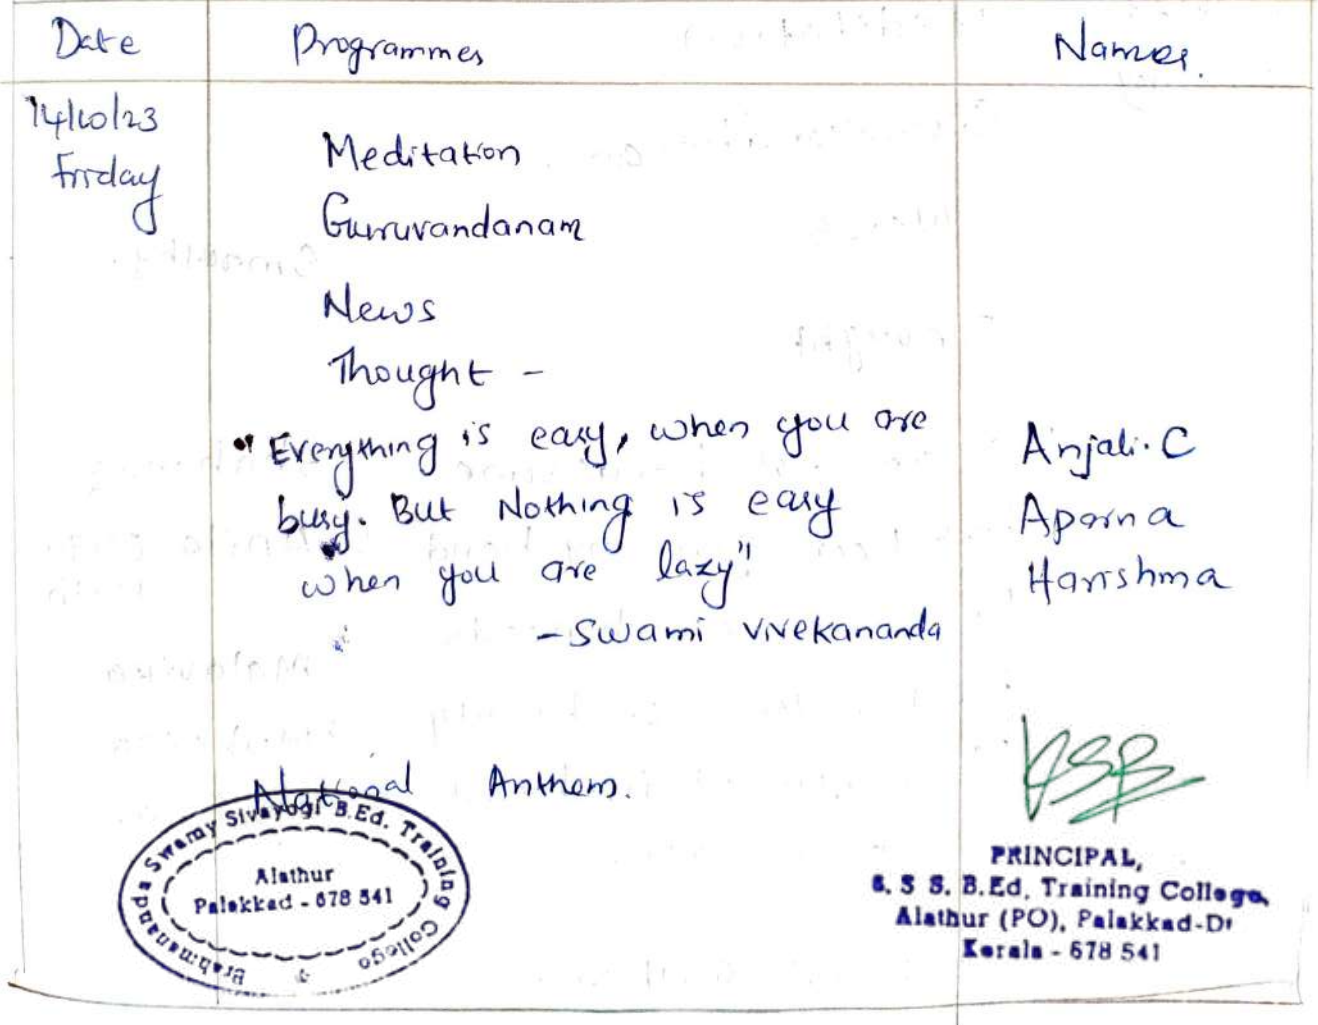 Date Programmes Names.
14/10/23
Friday
Meditation
Guruvandanam
News
Thought -
"Everything is easy, when you are
busy. But Nothing is easy
when you are lazy"
- Swami Vivekananda
Anjali. C
Aparna
Harishma
National Anthem.
Brahmananda Swamy Sivayogi B.Ed. Training College
Alathur
Palakkad - 678 541
PRINCIPAL,
B. S S. B.Ed. Training College,
Alathur (PO), Palakkad-Dt
Kerala - 678 541